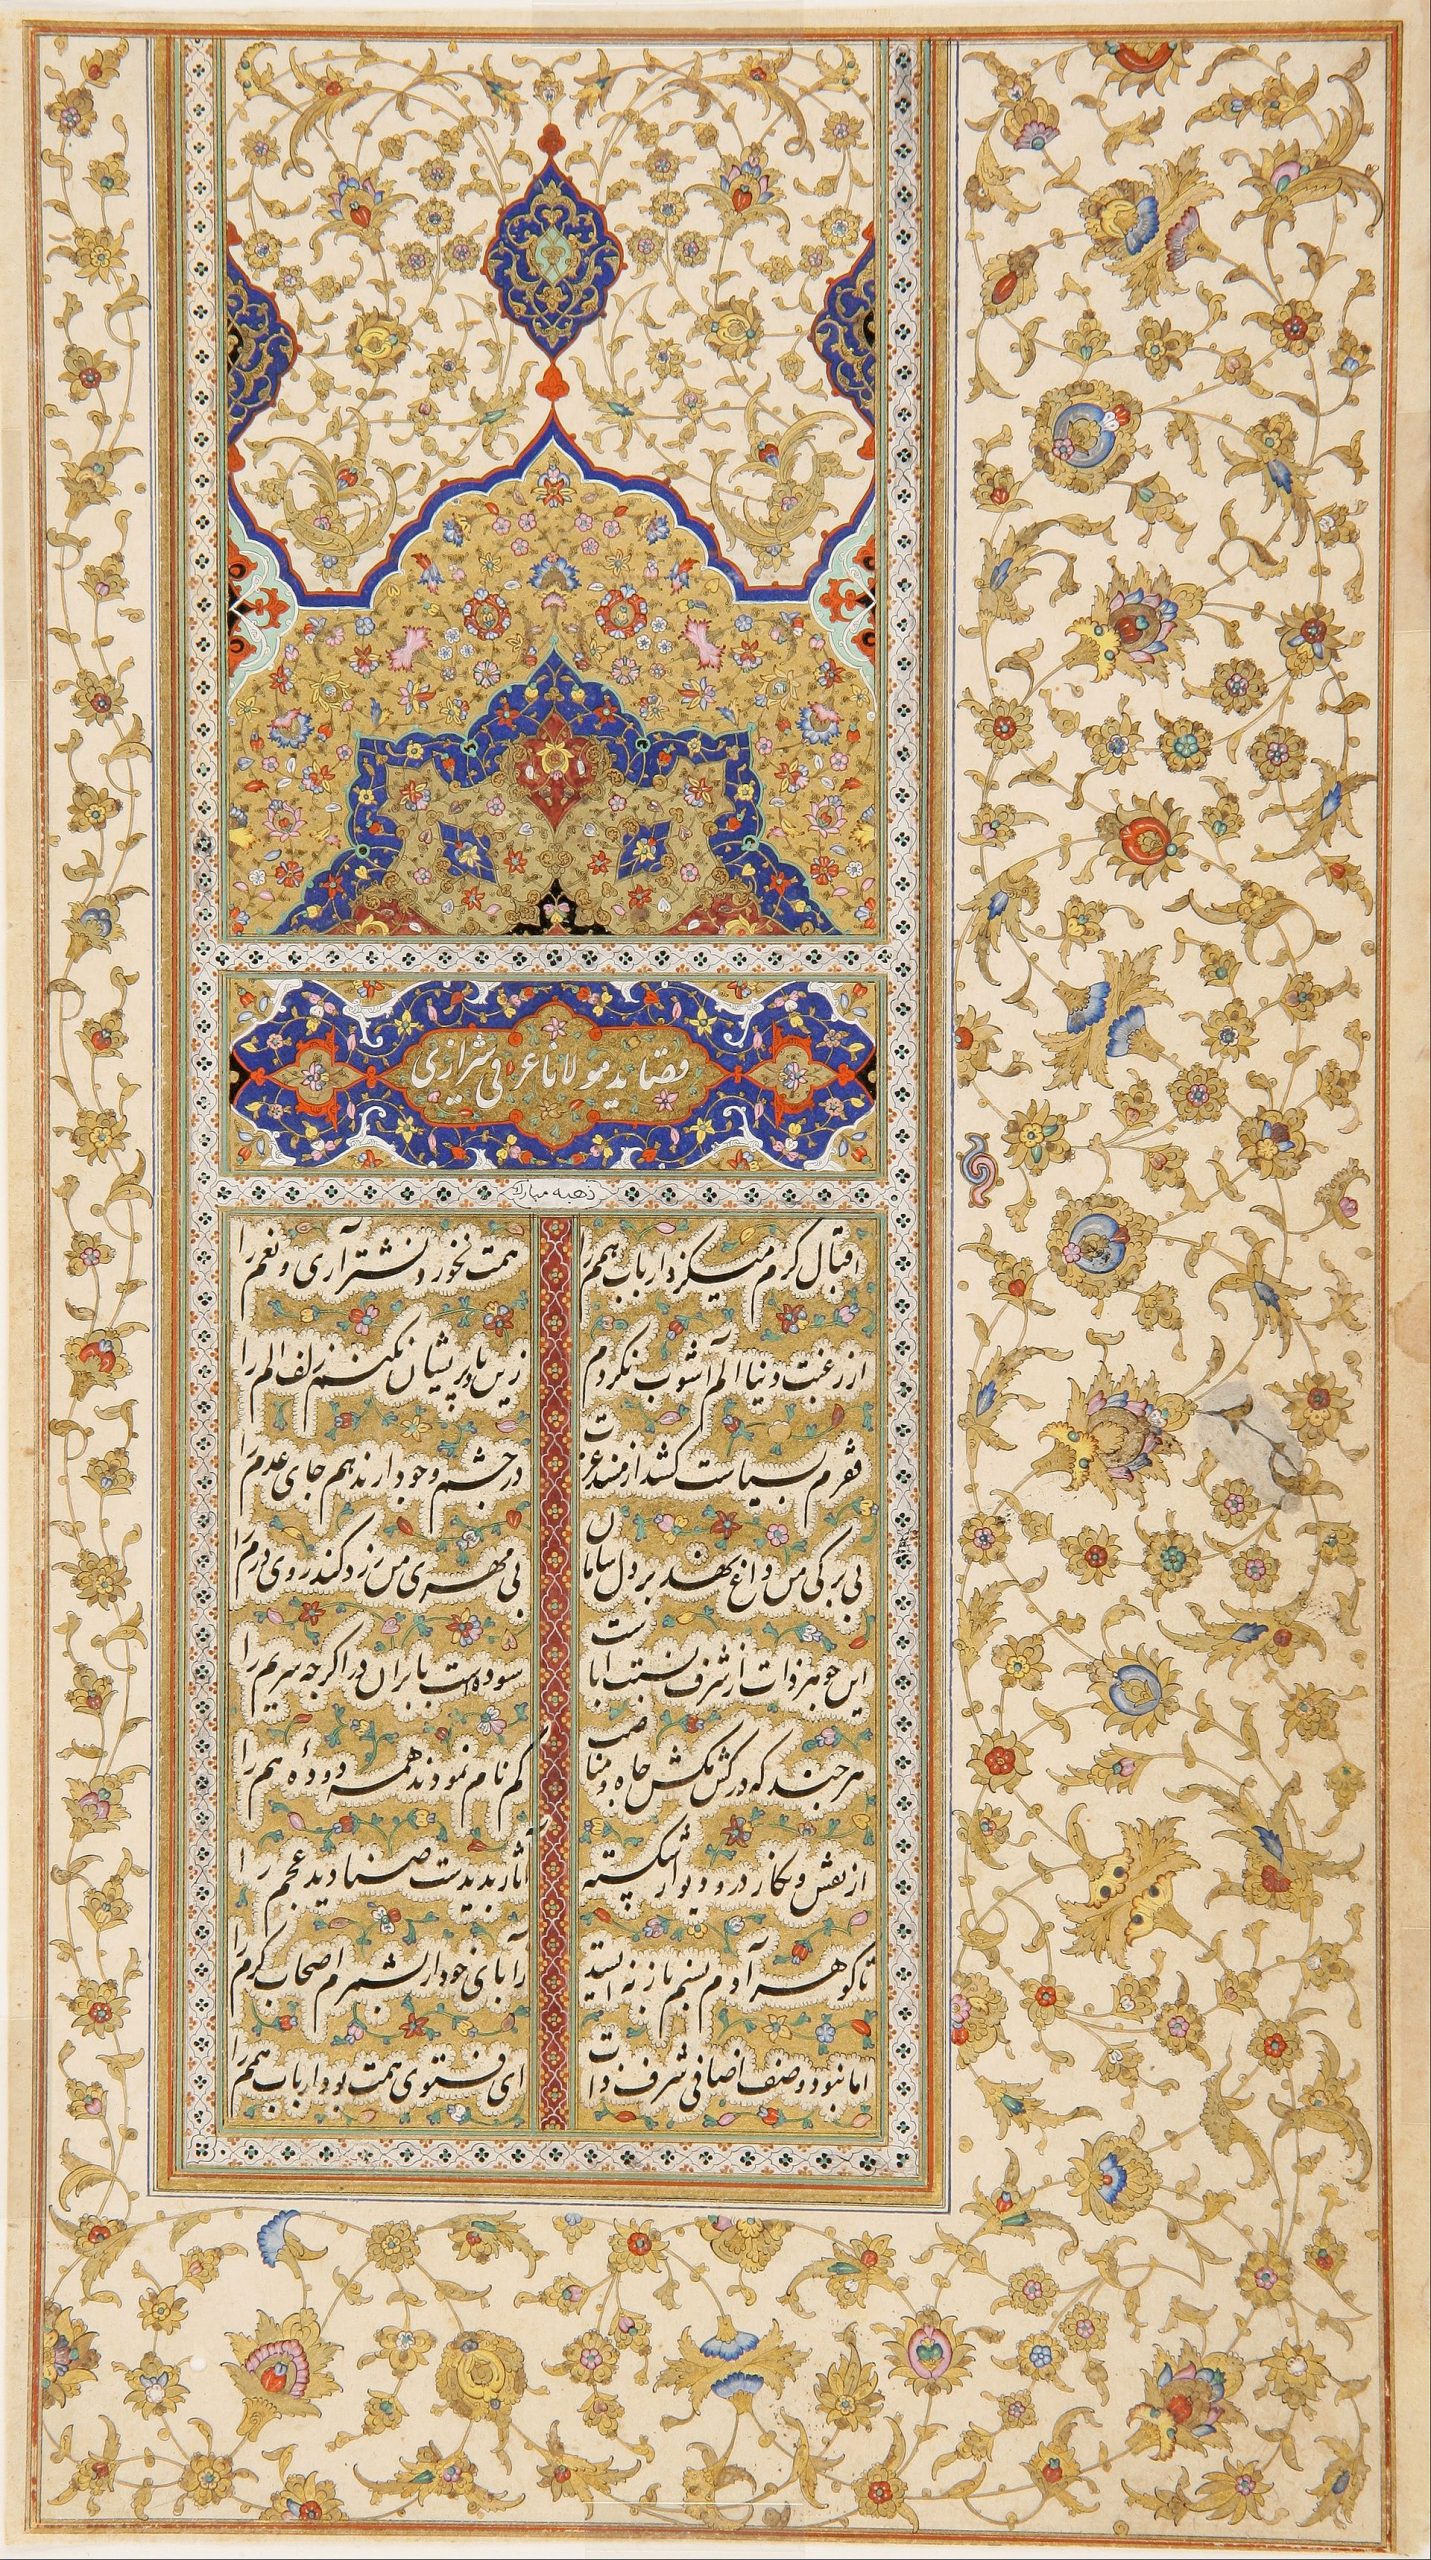 قصاید مولانا عرفی شیرازی
ذهبه مبارک
اقبال کرم میگزد ارباب همم را
همت نخورد نشتر آری و نعم را
از رغبت دنیا الم آشوب نگردم
زین باد پریشان نکنم زلف الم را
فقرم بسیاست کشد از مسند عزت
در چشم وجود ار ندهم جای عدم را
بی برگی من داغ نهد بر دل سامان
بی مهری من زرد کند روی درم را
این جوهر ذات از شرف نسبت اباست
سودست بابر ان در اگرچه سریم را
هر چند که در کش مکش جاه و مناصب
کم نام نمودند همه دودهٔ هم را
از نقش و نگار در و دیوار شکسته
آثار بدیدست صنادید عجم را
تا گوهر آدم نسبم باز نه استد
ز آبای خود ار بشمرم اصحاب کرم را
اما نبود وصف اضافی شرف ذات
ای فتوی همت بود ارباب همم را